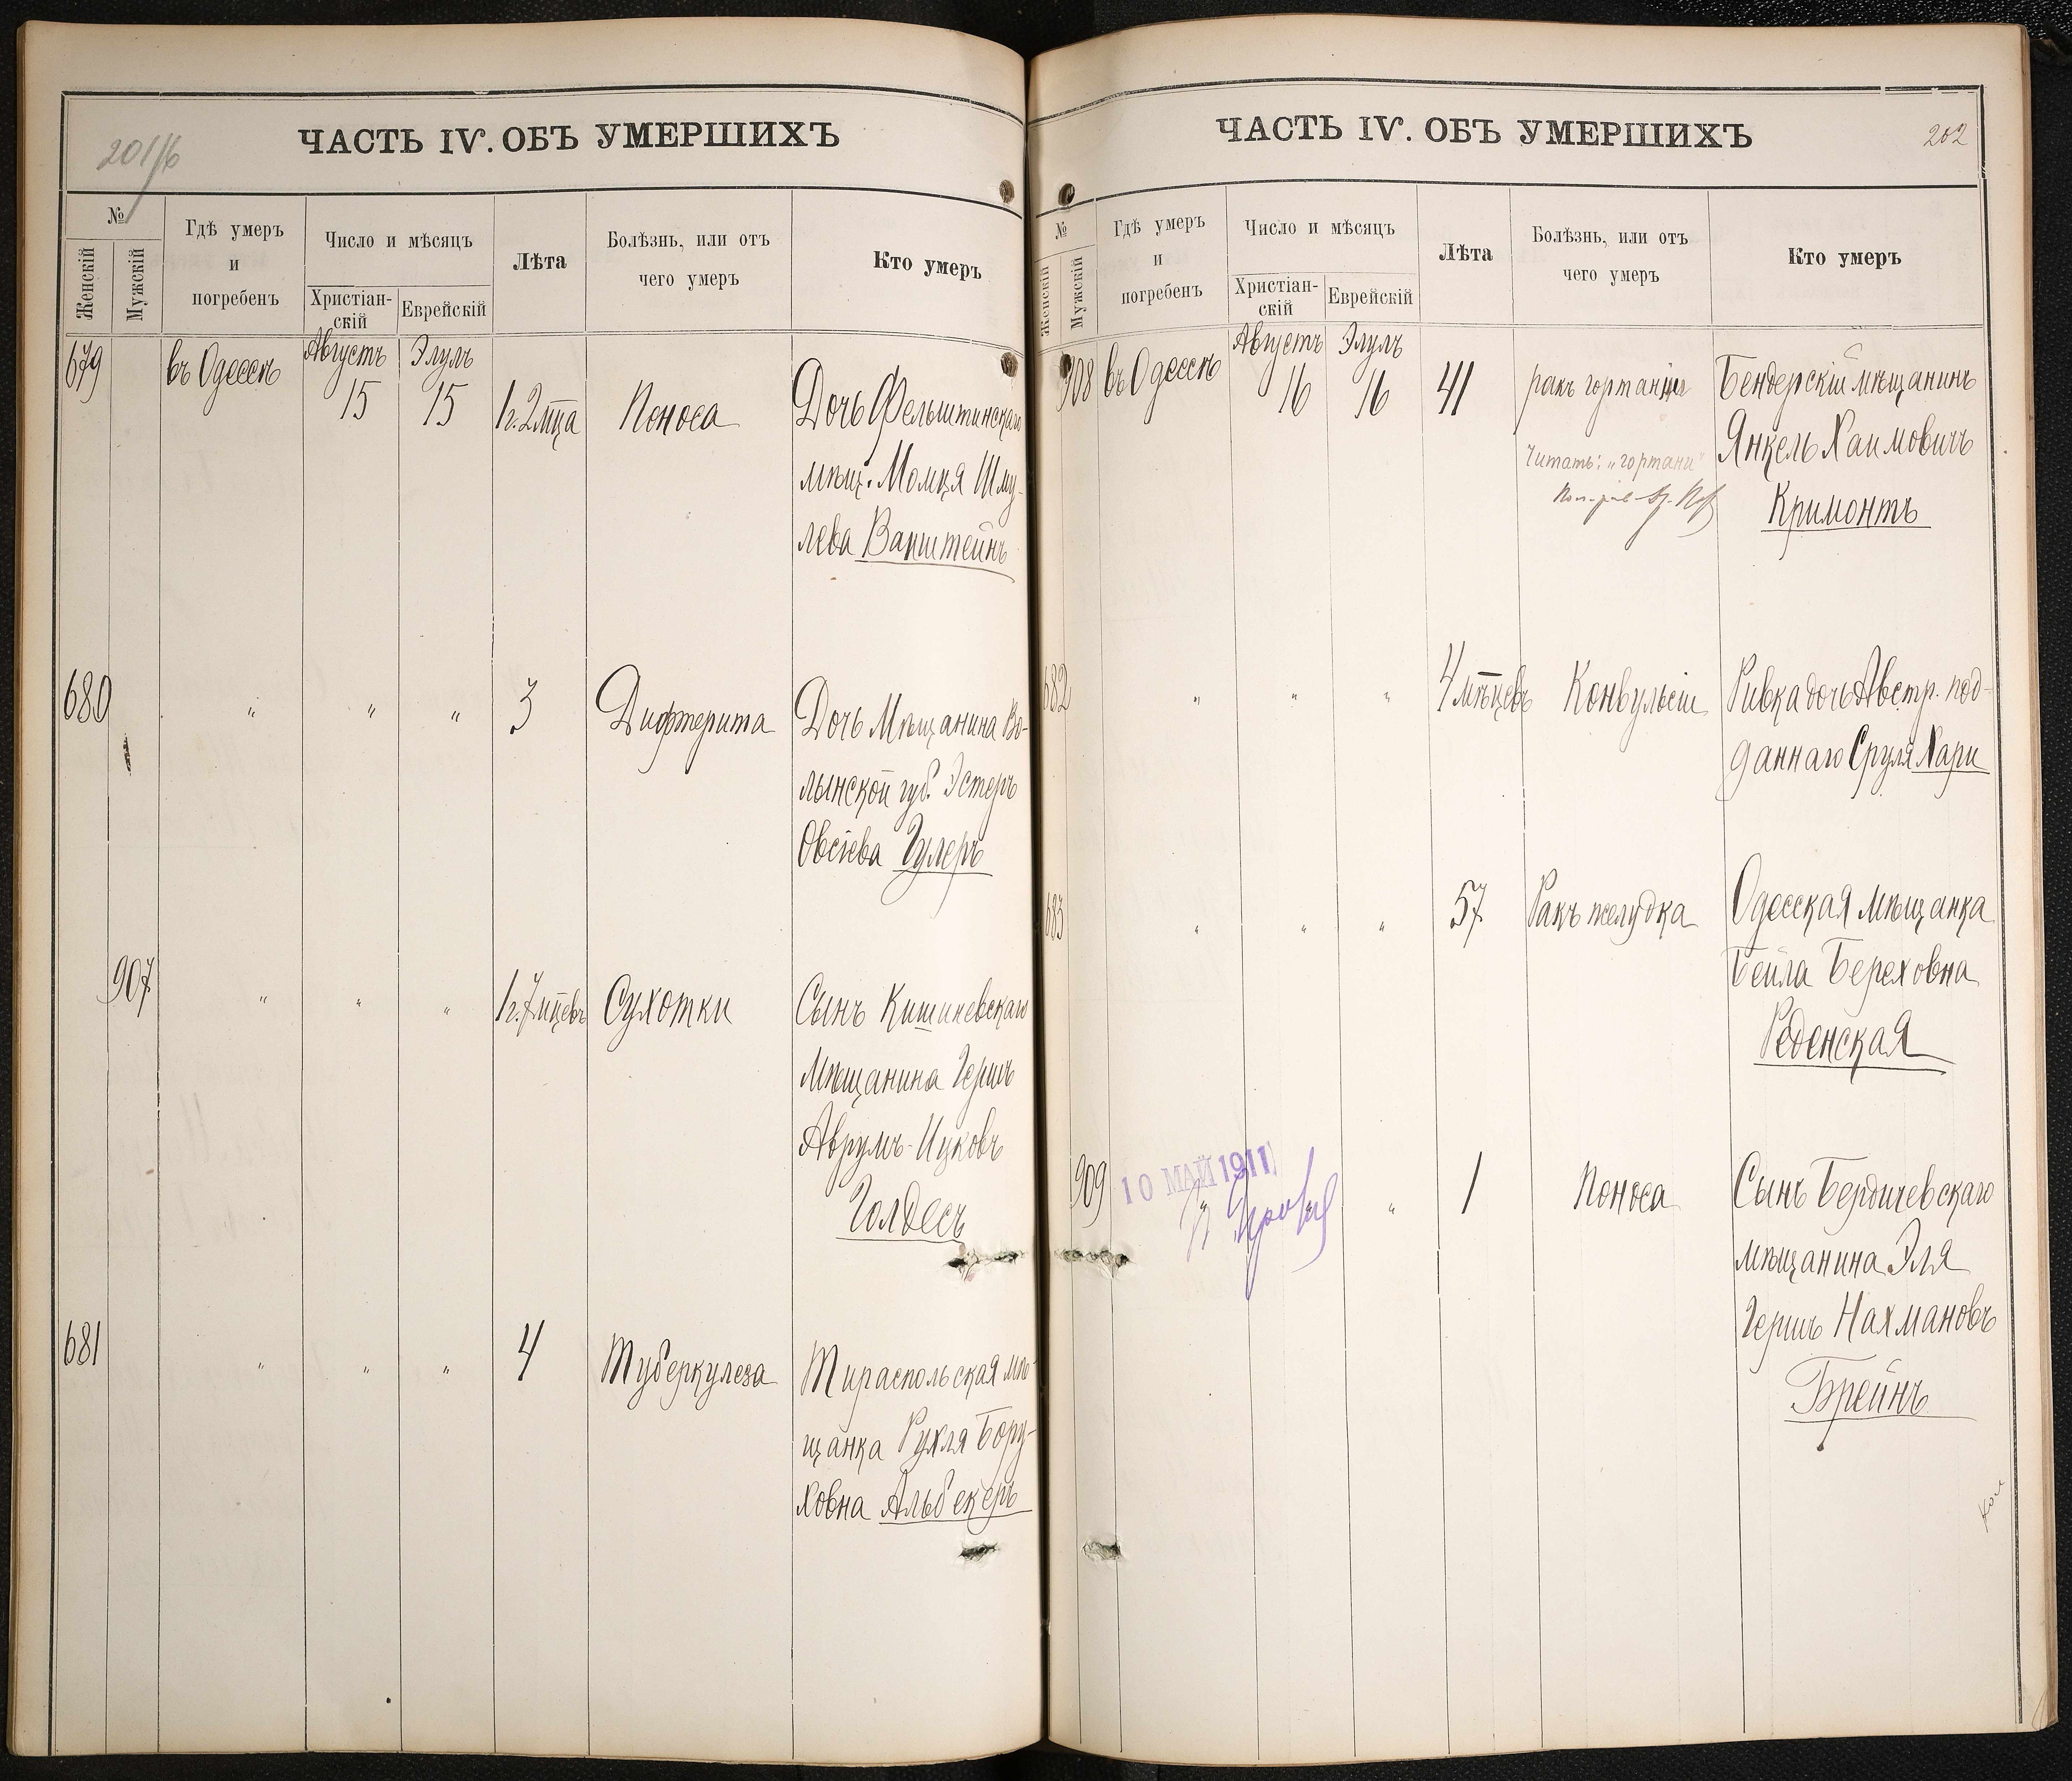 201/б
ЧАСТЬ IV. ОБЪ УМЕРШИХЪ
№
Женскій
Мужскій
Гдѣ умеръ
и
погребенъ
Число и мѣсяцъ
Христіан-
скій
Еврейскій
Лѣта
Болѣзнь, или отъ
чего умеръ
Кто умеръ
679
въ Одессѣ
Августъ
15
Элулъ
15
1г. 2 мца
Поноса
Дочь Фельштинскаго
мѣщ. Молця Шму-
лева Ванштейнъ
680
" " "
3
Дифтерита
Дочь Мѣщанина Во-
лынской губ. Эстеръ
Овсіева Гулеръ
907
" " "
1г. 7 мцевъ
Сухотки
Сынъ Кишиневскаго
Мѣщанина Гершъ
Аврумъ-Ицковъ
Голдесъ
681
" " "
4
Туберкулеза
Тираспольская мѣ-
щанка Рухля Бору-
ховна Альбекеръ
ЧАСТЬ IV. ОБЪ УМЕРШИХЪ
202
№
Женскій
Мужскій
Гдѣ умеръ
и
погребенъ
Число и мѣсяцъ
Христіан-
скій
Еврейскій
Лѣта
Болѣзнь, или отъ
чего умеръ
Кто умеръ
908
въ Одессѣ
Августъ
16
Элулъ
16
41
ракъ гортаніи
Читать: „гортани"
Бендерскій мѣщанинъ
Янкель Хаимовичъ
Кримонтъ
682
" " "
4 мѣсцевъ
Конвульсіи
Ривка дочь Австр. под-
даннаго Сруля Хари
683
" " "
57
Ракъ желудка
Одесская мѣщанка
Бейла Береховна
Реденская
909
10 МАЙ 1911
" " "
1
Поноса
Сынъ Бердичевскаго
мѣщанина Эля
Гершъ Нахмановъ
Брейнъ